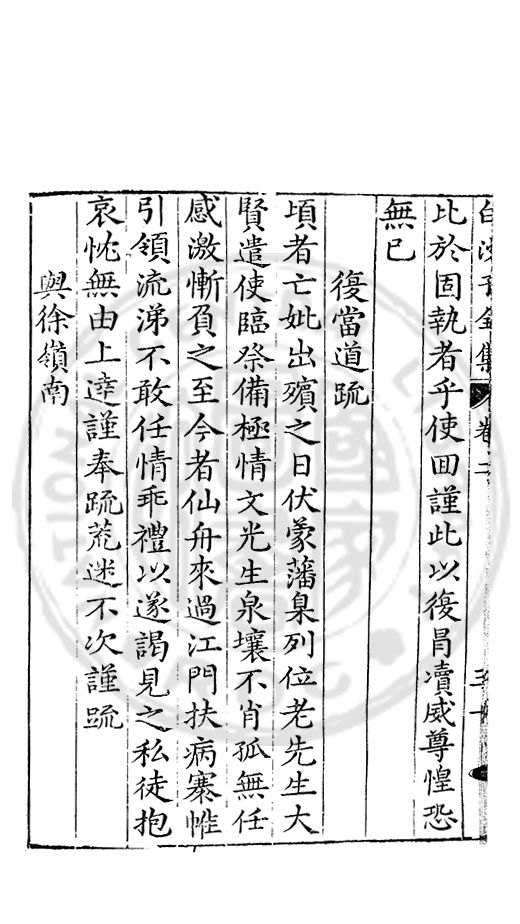 白沙子全集 卷二 三十
比於固執者乎使回謹此以復冐凟威尊惶恐
無已
復當道䟽
頃者亡妣出殯之日伏蒙藩臬列位老先生大
賢遣使臨祭備極情文光生泉壤不肖孤無任
感激慚負之至今者仙舟來過江門扶病寨帷
引領流涕不敢任情乖禮以遂謁見之私徒抱
哀忱無由上達謹奉䟽荒迷不次謹䟽
與徐嶺南